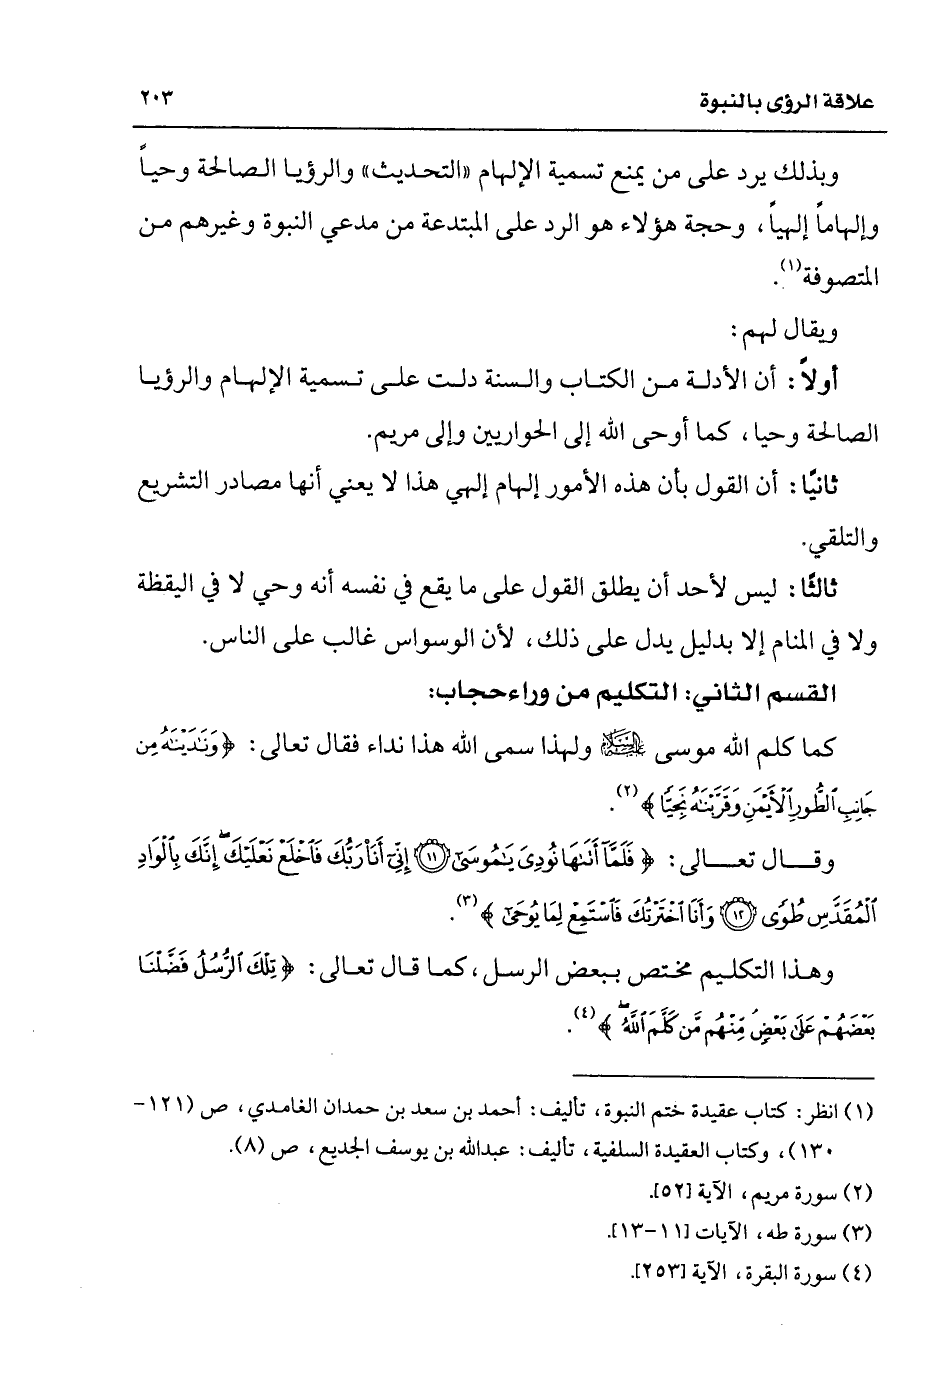 علاقة الرؤى بالنبوة ٢٠٣
وبذلك يرد على من يمنع تسمية الإلهام «التحديث» والرؤيا الصالحة وحياً
وإلهاماً إلهياً، وحجة هؤلاء هو الرد على المبتدعة من مدعي النبوة وغيرهم من
المتصوفة(١).
ويقال لهم:
أولاً: أن الأدلة من الكتاب والسنة دلت على تسمية الإلهام والرؤيا
الصالحة وحيا، كما أوحى الله إلى الحواريين وإلى مريم.
ثانيًا: أن القول بأن هذه الأمور إلهام إلهي هذا لا يعني أنها مصادر التشريع
والتلقي.
ثالثًا: ليس لأحد أن يطلق القول على ما يقع في نفسه أنه وحي لا في اليقظة
ولا في المنام إلا بدليل يدل على ذلك، لأن الوسواس غالب على الناس.
القسم الثاني: التكليم من وراء حجاب:
كما كلم الله موسى عليه السلام ولهذا سمى الله هذا نداء فقال تعالى: ﴿وَنَٰدَيْنَٰهُ مِن
جَانِبِ ٱلطُّورِ ٱلْأَيْمَنِ وَقَرَّبْنَٰهُ نَجِيًّا﴾(٢).
وقال تعالى: ﴿فَلَمَّآ أَتَىٰهَا نُودِىَ يَٰمُوسَىٰٓ ١١ إِنِّىٓ أَنَا۠ رَبُّكَ فَٱخْلَعْ نَعْلَيْكَ ۖ إِنَّكَ بِٱلْوَادِ
ٱلْمُقَدَّسِ طُوًى ١٢ وَأَنَا ٱخْتَرْتُكَ فَٱسْتَمِعْ لِمَا يُوحَىٰٓ﴾(٣).
وهذا التكليم مختص ببعض الرسل، كما قال تعالى: ﴿تِلْكَ ٱلرُّسُلُ فَضَّلْنَا
بَعْضَهُمْ عَلَىٰ بَعْضٍ مِّنْهُم مَّن كَلَّمَ ٱللَّهُ ۖ﴾(٤).
(١) انظر: كتاب عقيدة ختم النبوة، تأليف: أحمد بن سعد بن حمدان الغامدي، ص (١٢١-
١٣٠)، وكتاب العقيدة السلفية، تأليف: عبدالله بن يوسف الجديع، ص (٨).
(٢) سورة مريم، الآية [٥٢].
(٣) سورة طه، الآيات [١١-١٣].
(٤) سورة البقرة، الآية [٢٥٣].